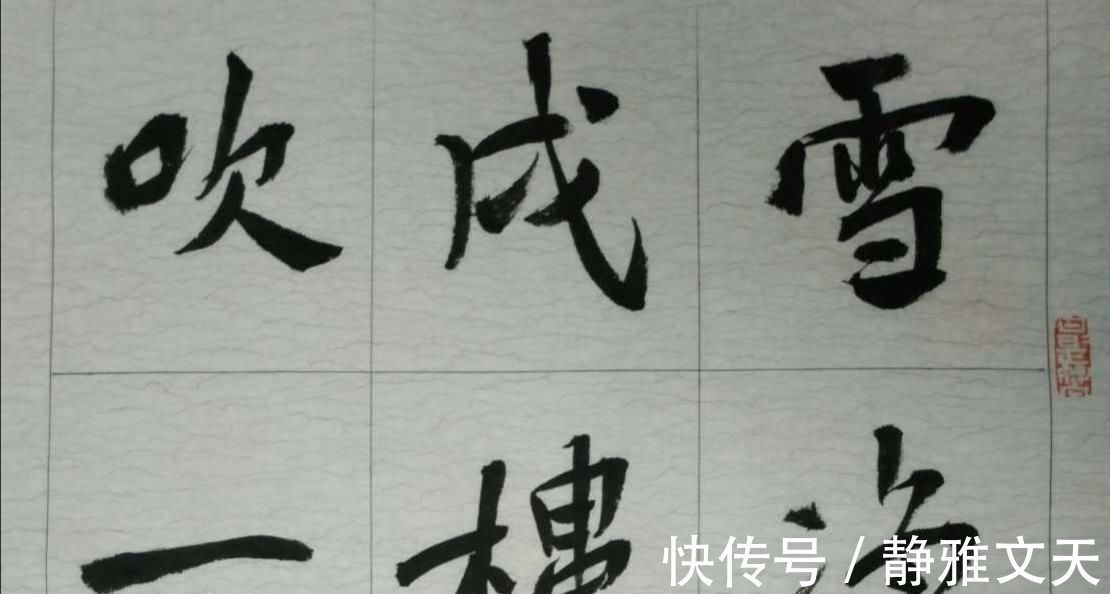 雪净
戍樓
吹一
快传号 / 静雅文天